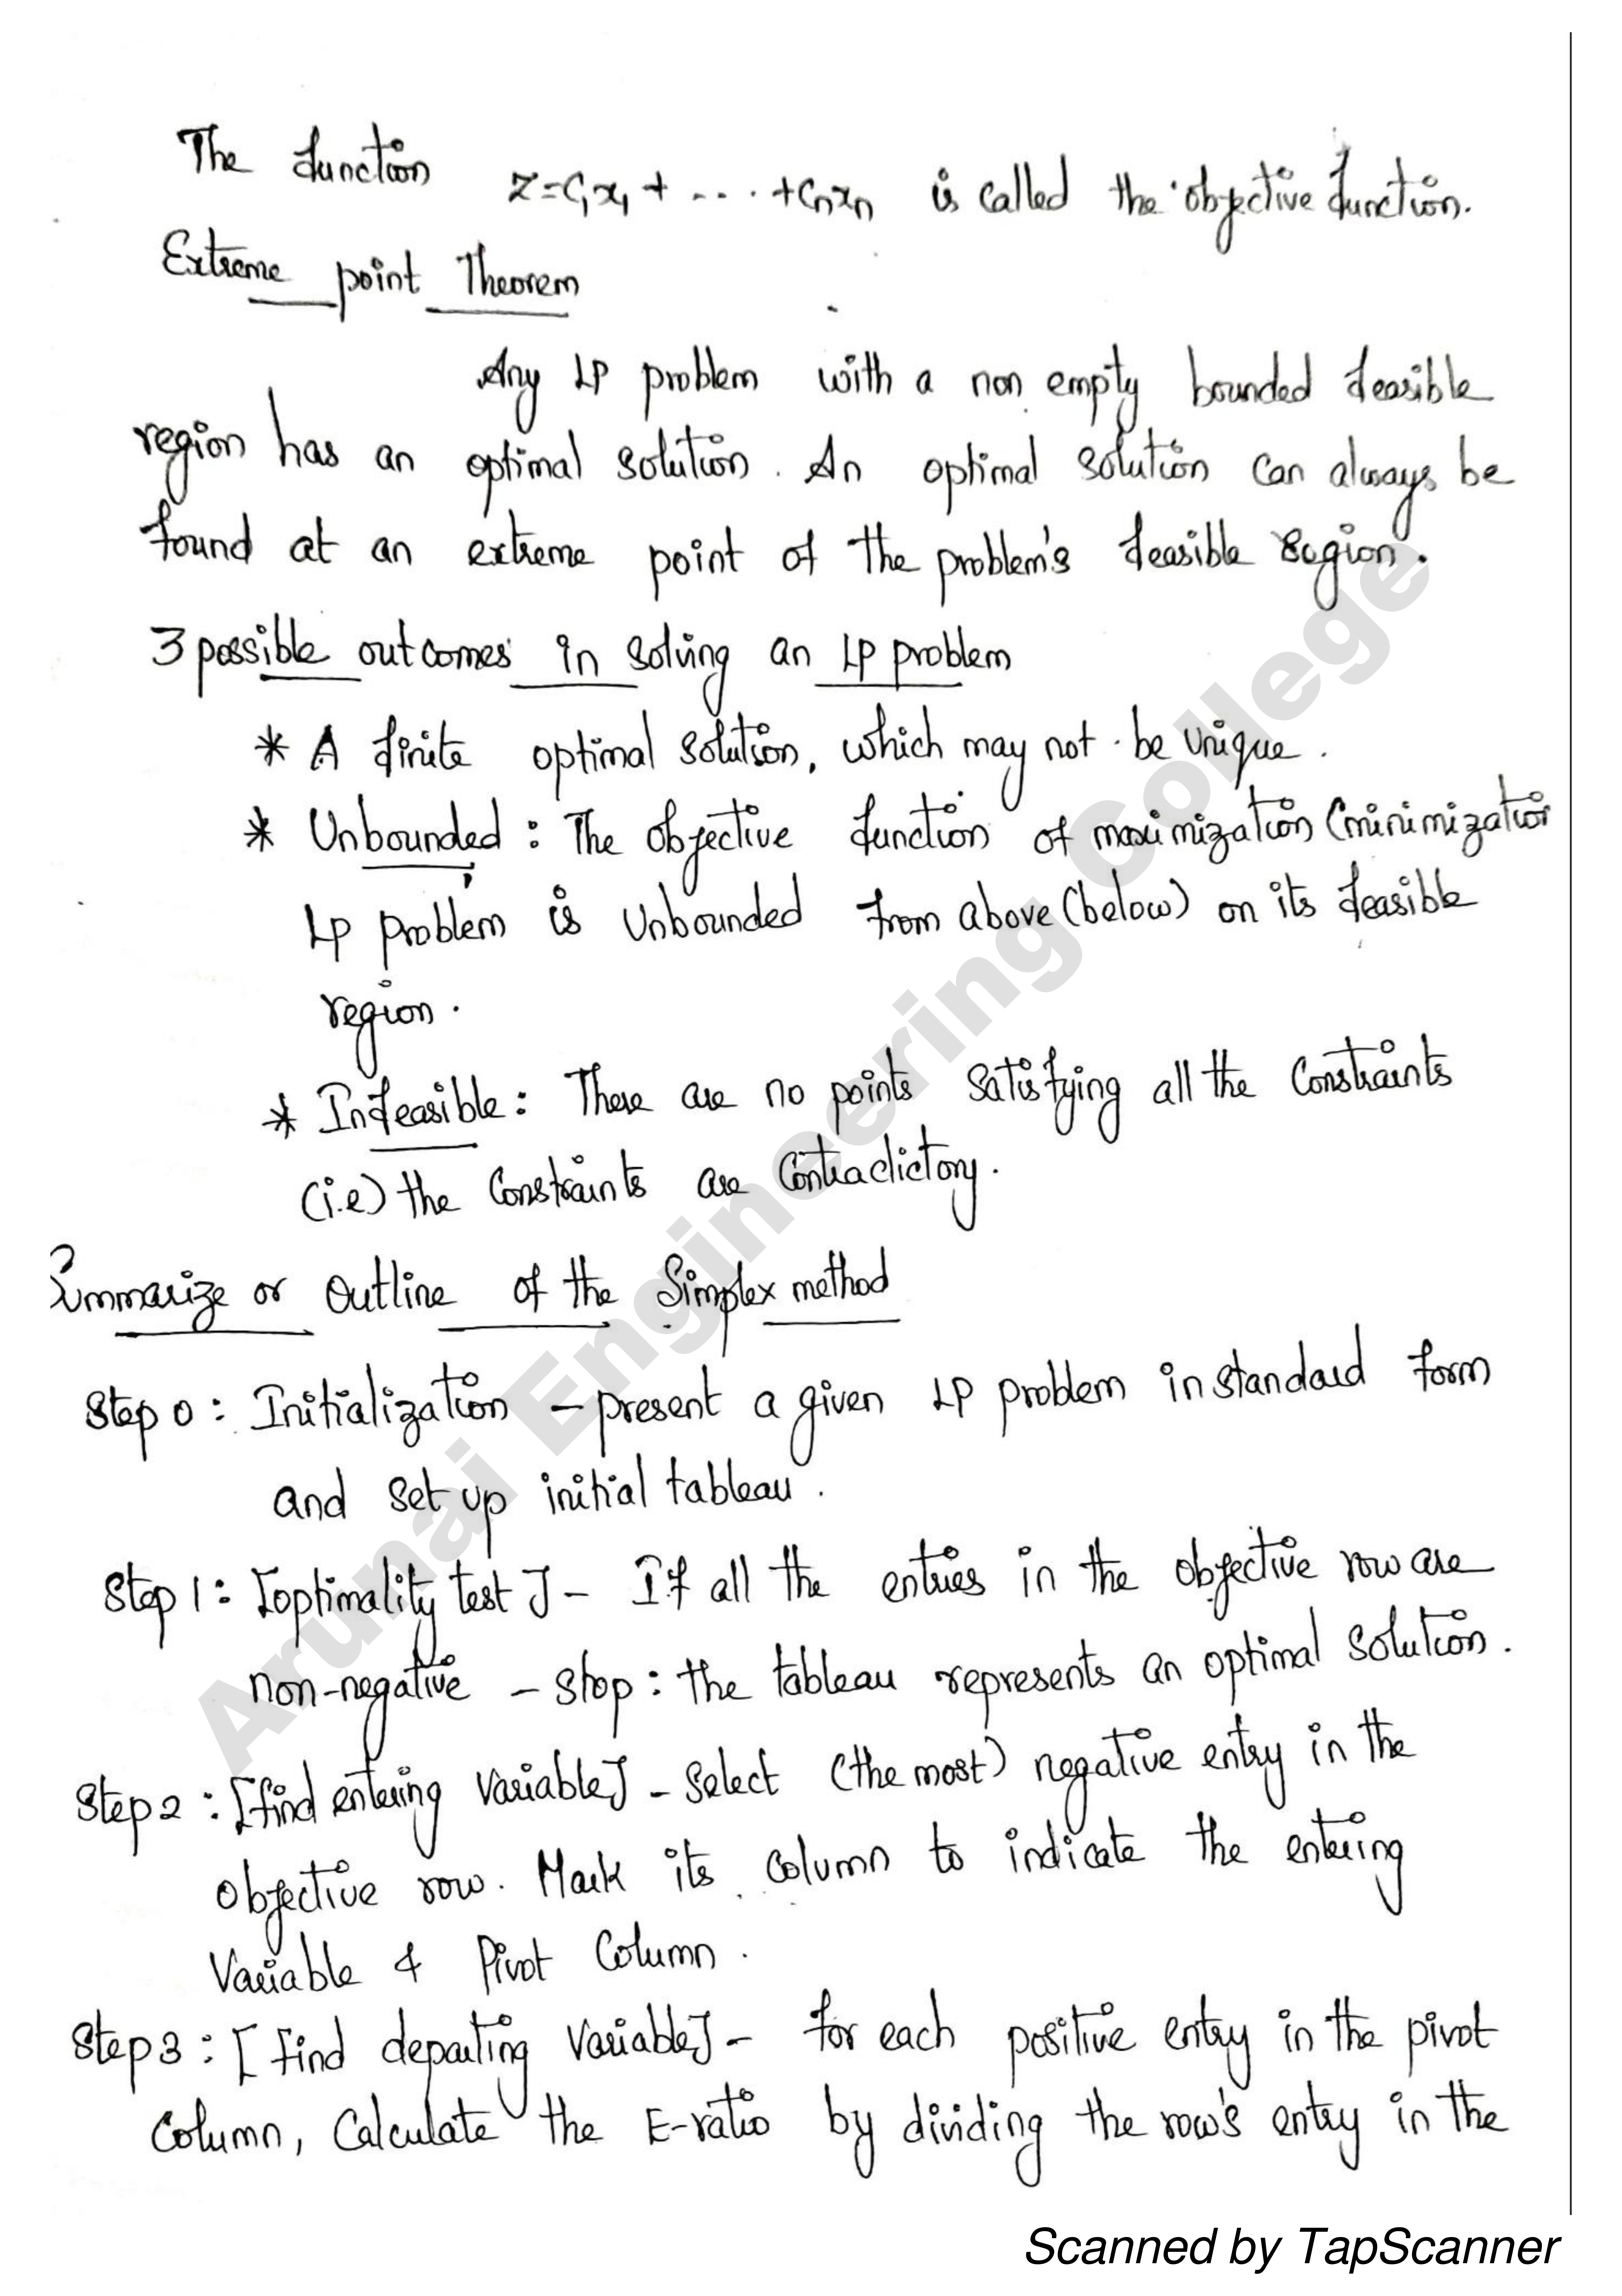 The function Z=C₁x₁ + .... + Cnxn is called the objective function.
Extreme point Theorem
Any LP problem with a non empty bounded feasible
region has an optimal solution. An optimal solution can always be
found at an extreme point of the problem's feasible region.
3 possible outcomes in solving an LP problem
* A finite optimal solution, which may not be unique.
* Unbounded : The objective function of maximization (minimization
LP problem is unbounded from above (below) on its feasible
region.
* Infeasible : There are no points satisfying all the constraints
(i.e) the constraints are contradictory.
Summarize or outline of the Simplex method
Step 0 : Initialization - present a given LP problem in standard form
and set up initial tableau.
Step 1 : [optimality test] - If all the entries in the objective row are
non-negative - stop : the tableau represents an optimal solution.
Step 2 : [find entering variable] - Select (the most) negative entry in the
objective row. Mark its column to indicate the entering
Variable & Pivot Column.
Step 3 : [find departing variable] - for each positive entry in the pivot
Column, Calculate the E-ratio by dividing the row's entry in the
Arunai Engineering College
Scanned by TapScanner